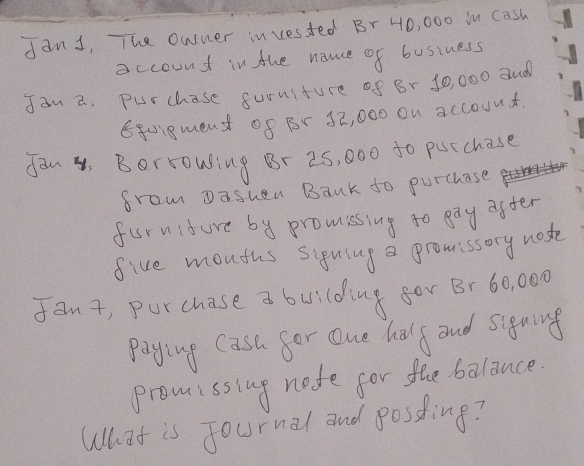 Jan 1, The owner invested Br 40,000 in cash
account in the name of business
Jan 2. Purchase furniture of Br 10,000 and
Equigment of Br 12,000 on account.
Jan 4, Borrowing Br 25,000 to purchase
from Dashen Bank to purchase
furniture by promissing to pay after
five months signing a promissory note
Jan 7, purchase a building for Br 60,000
paying cash for one half and signing
promissing note for the balance.
What is Journal and possting?